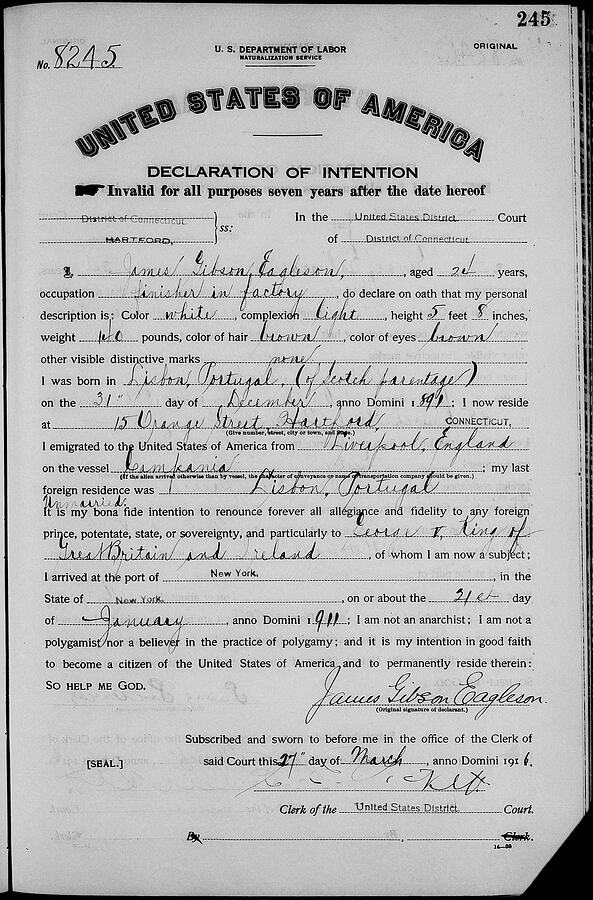 245
No. 8245.
U. S. DEPARTMENT OF LABOR
NATURALIZATION SERVICE
ORIGINAL
UNITED STATES OF AMERICA
DECLARATION OF INTENTION
Invalid for all purposes seven years after the date hereof
District of Connecticut. ss: In the United States District Court
HARTFORD, of District of Connecticut.
I, James Gibson Eagleson, aged 24 years,
occupation finisher in factory, do declare on oath that my personal
description is: Color white, complexion light, height 5 feet 8 inches,
weight 140 pounds, color of hair brown, color of eyes brown
other visible distinctive marks none
I was born in Lisbon, Portugal, (of Scotch parentage)
on the 31" day of December, anno Domini 1891; I now reside
at 15 Orange Street, Hartford, CONNECTICUT,
(Give number, street, city or town, and State.)
I emigrated to the United States of America from Liverpool, England
on the vessel Campania; my last
(If the alien arrived otherwise than by vessel, the character of conveyance or name of transportation company should be given.)
foreign residence was Lisbon, Portugal
Unmarried.
It is my bona fide intention to renounce forever all allegiance and fidelity to any foreign
prince, potentate, state, or sovereignty, and particularly to George V, King of
Great Britain and Ireland, of whom I am now a subject;
I arrived at the port of New York, in the
State of New York, on or about the 21st day
of January, anno Domini 1911; I am not an anarchist; I am not a
polygamist nor a believer in the practice of polygamy; and it is my intention in good faith
to become a citizen of the United States of America and to permanently reside therein:
SO HELP ME GOD.
James Gibson Eagleson.
(Original signature of declarant.)
Subscribed and sworn to before me in the office of the Clerk of
[SEAL.] said Court this 27" day of March, anno Domini 1916.
Clerk of the United States District Court.
By Clerk.
14—56